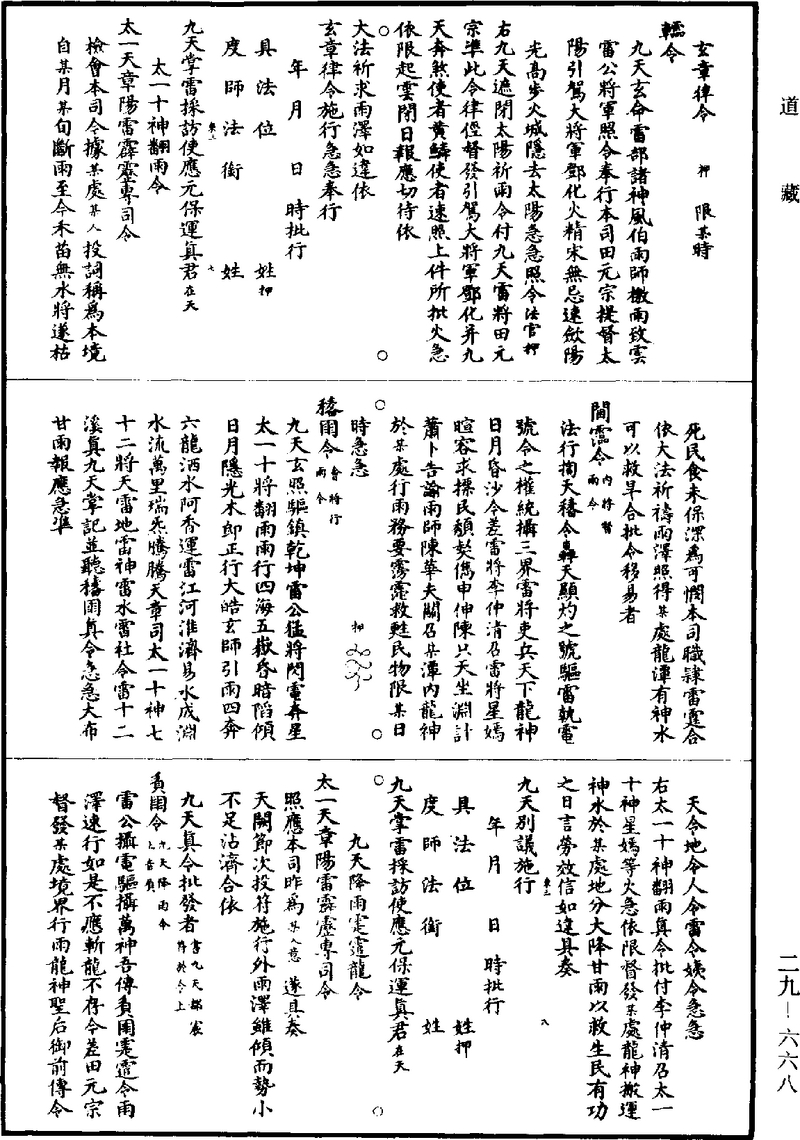 道藏
玄章律令　押　限某時
轟令
九天玄命雷部諸神風伯雨師檄雨致雲
雷公將軍照令奉行本司田元宗提督太
陽引駕大將軍鄧化火精宋無忌速斂陽
光高步火城隱去太陽急急照令法官押
右九天遮閉太陽祈雨令付九天雷將田元
宗準此令律徑督發引駕大將軍鄧化并九
天奔煞使者黃鱗使者速照上件所批火急
依限起雲閉日報應切待依
大法祈求雨澤如違依
玄章律令施行急急奉行
年月日時批行
具法位姓押
度師法銜姓
九天掌雷採訪使應元保運真君在天
太一十神翻雨令
太一天章陽雷霹靂專司令
檢會本司令據某處某人投詞稱為本境
自某月某旬斷雨至今禾苗無水將遂枯
死民食未保深為可憫本司職隸雷霆合
依大法祈禱雨澤照得某處龍潭有神水
可以救旱合批令移易者
法行掏天禧令轟天顯灼之號驅雷執電
號令之權統攝三界雷將吏兵天下龍神
日月昏沙令差雷將李仲清召雷將星嫣
暄容求摞民頹娑儁申伸陳只天坐淵計
蕭卜告諭雨師陳華夫關召某潭內龍神
於某處行雨務要霶霈救甦民物限某日
時急急　押
雨令會將行雨令
九天玄照驅鎮乾坤雷公猛將閃電奔星
太一十將翻雨雨行四海五嶽昏暗陷傾
日月隱光木郎正行大皓玄師引雨四奔
六龍洒水阿香運雷江河淮濟易水成淵
水流萬里瑞炁騰騰天章司太一十神七
十二將天雷地雷神雷水雷社令雷十二
溪真九天掌記並聽禧雨真令急急大布
甘雨報應急準
天令地令人令雷令姨令急急
右太一十神翻雨真令批付李仲清召太一
十神星嫣等火急依限督發某處龍神搬運
神水於某處地分大降甘雨以救生民有功
之日言勞效信如違具奏
九天別議施行
年月日時批行
具法位姓押
度師法銜姓
九天掌雷採訪使應元保運真君在天
九天降雨霆龍令
太一天章陽雷霹靂專司令
照應本司昨為某人意遂具奏
天閽節次投符施行外雨澤雖傾而勢小
不足沾濟合依
九天真令批發者
雷公攝電驅攝萬神吾傳令雨
澤速行如是不應斬龍不存令差田元宗
督發某處境界行雨龍神聖后御前傳令
二九—六六八